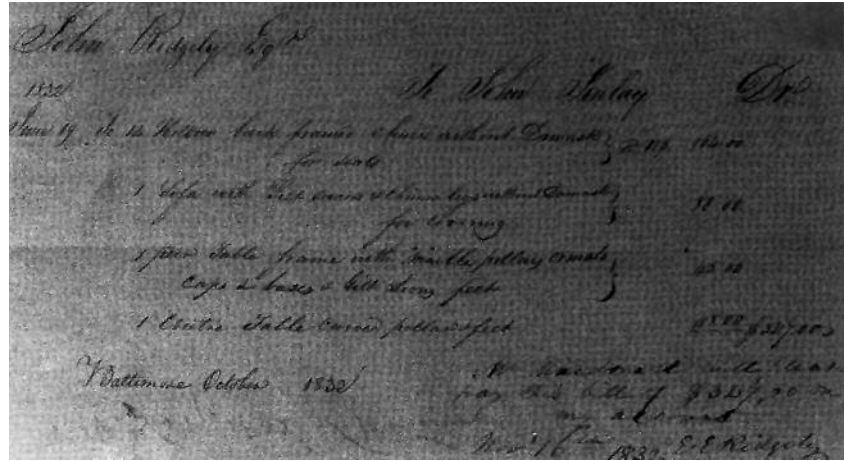 John Ridgely Esqr
1832 To John Finlay Dr.
June 19 To 14 back frame chairs without Damask
for seats
1 Sofa with Gilt swans & chimera legs without Damask
for covering
1 pier Table frame with marble pillars ornate
Caps & bases & Gilt Lions feet
1 Centre Table carved pillar & feet $327,00
Baltimore October 1832 Mr will please
pay this bill of $327,00 on
my account
Novr 16th 1832 E. E Ridgely